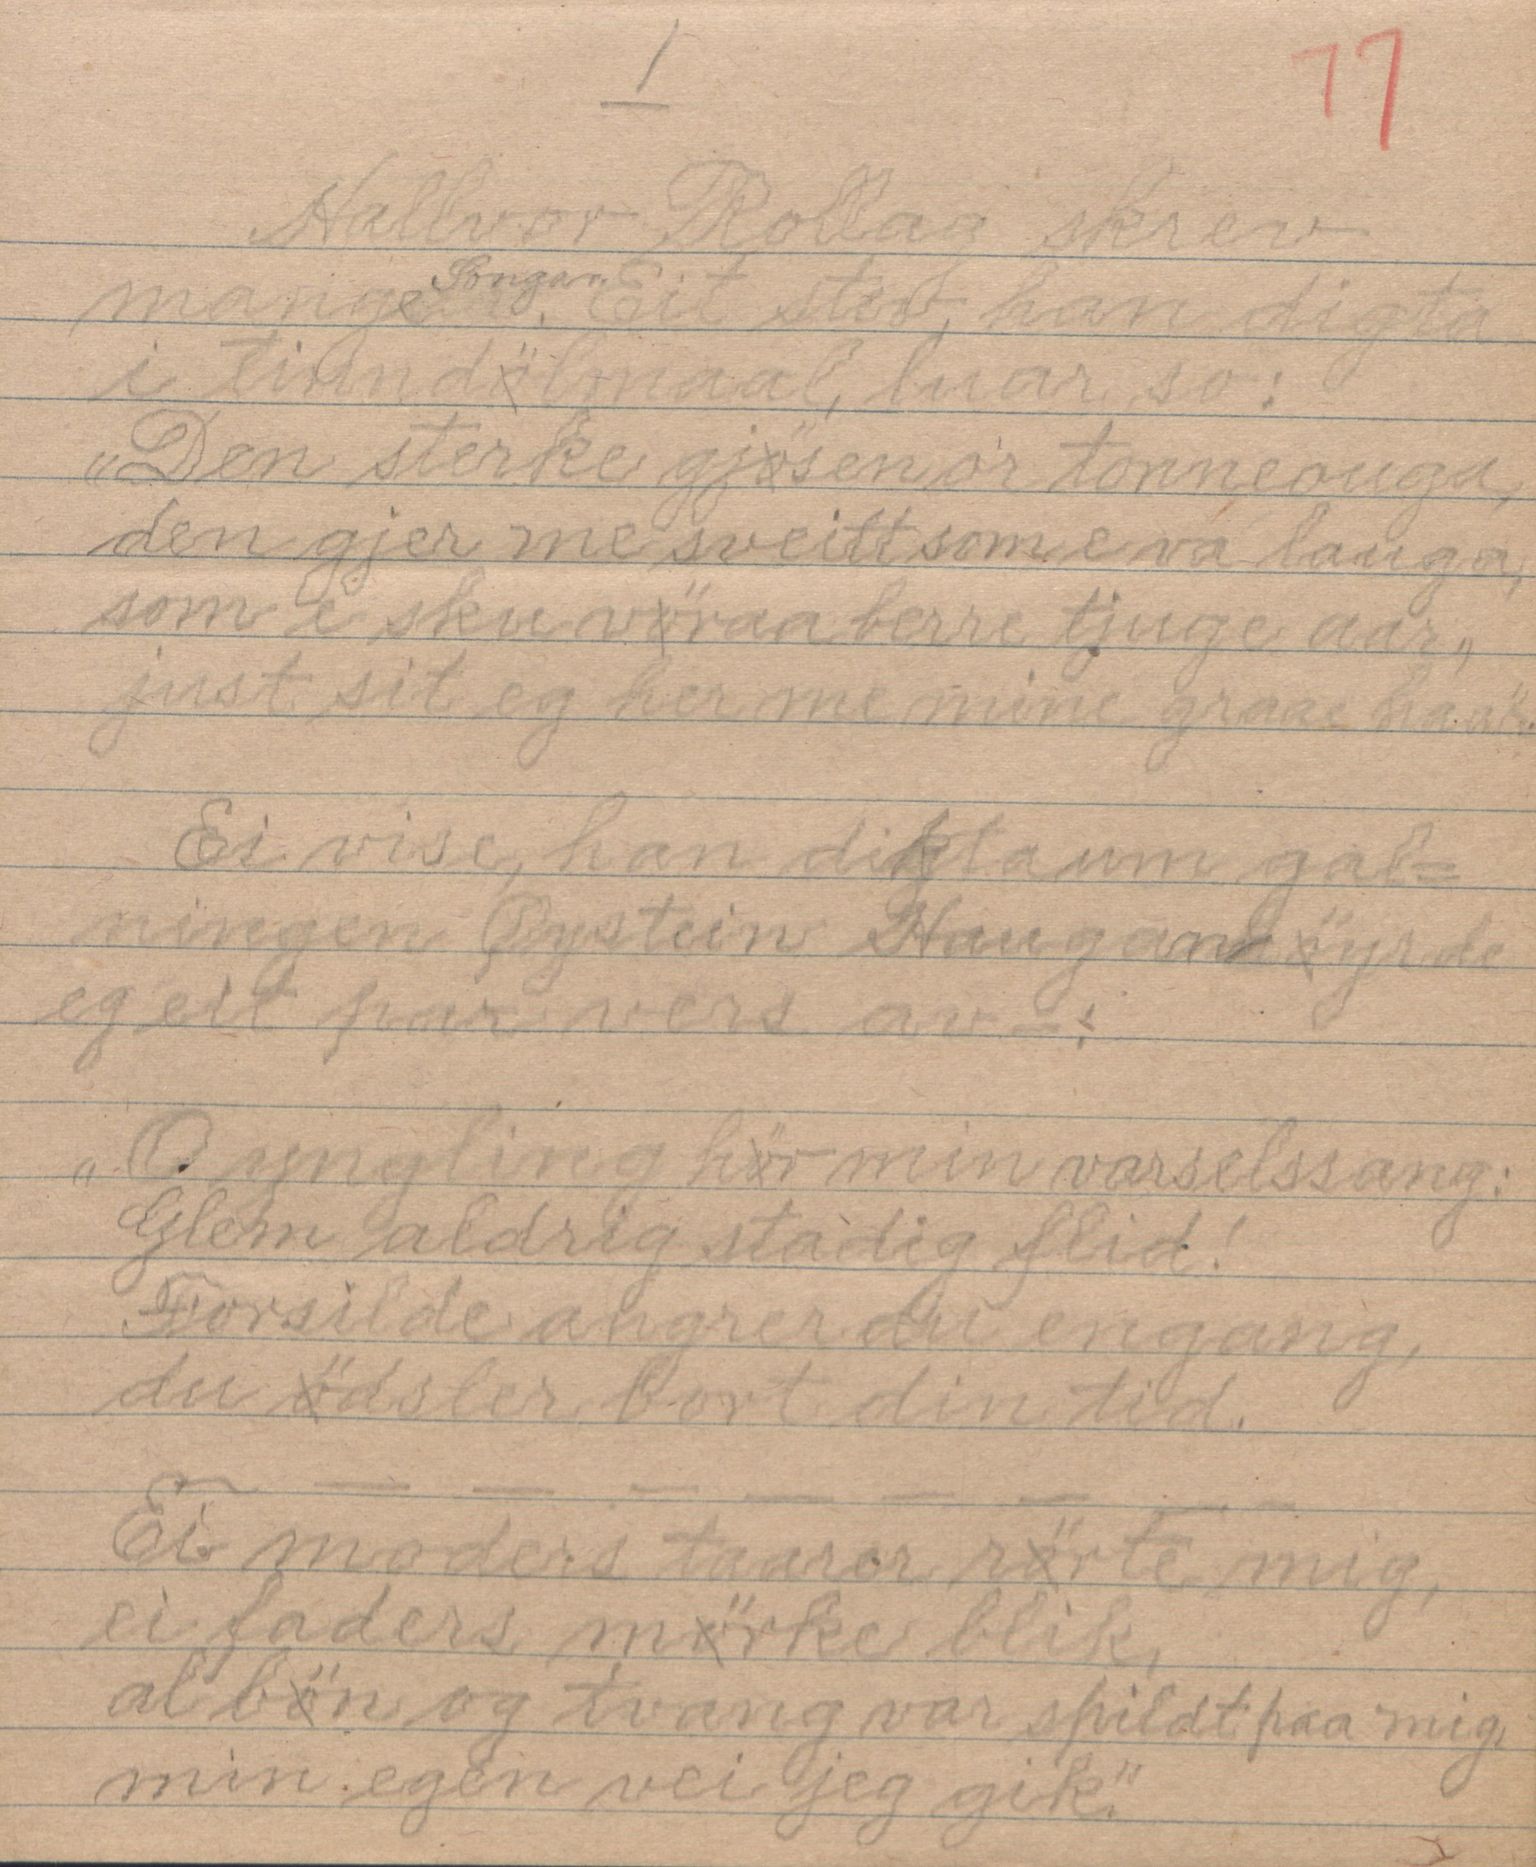 1
77
Hallvor Rollag skrev
mange Songar. Eit stev, han digta
i tinndölmaal, luar so:
„Den sterke gjösen òr tonneauga,
den gjer me sveitt som e va lauga,
som e sku vöraa berre tjuge aar,,
just sit eg her me mine graae haar.
Ei vise, han digta um gal=
ningen Öystein Haugan höyrde
eg eit par vers av-:
„O yngling hör min varselssang:
Glem aldrig stadig flid!
Forsilde angrer du engang,
du ödsler bort din tid.
— — — — — — — —
Ei moders taarer rörte mig,
ei faders mörke blik,
al bön og tvang var spildt paa mig
min egen vei jeg gik."